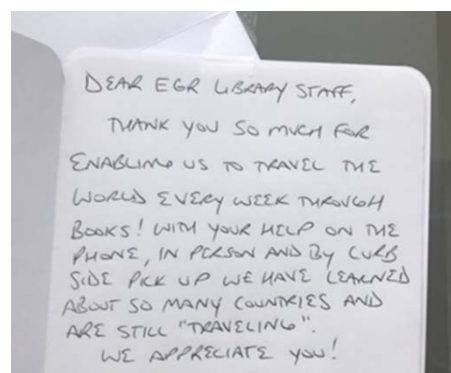 DEAR EGR LIBRARY STAFF,
THANK YOU SO MUCH FOR
ENABLING US TO TRAVEL THE
WORLD EVERY WEEK THROUGH
BOOKS! WITH YOUR HELP ON THE
PHONE, IN PERSON AND BY CURB
SIDE PICK UP WE HAVE LEARNED
ABOUT SO MANY COUNTRIES AND
ARE STILL "TRAVELING".
WE APPRECIATE YOU!